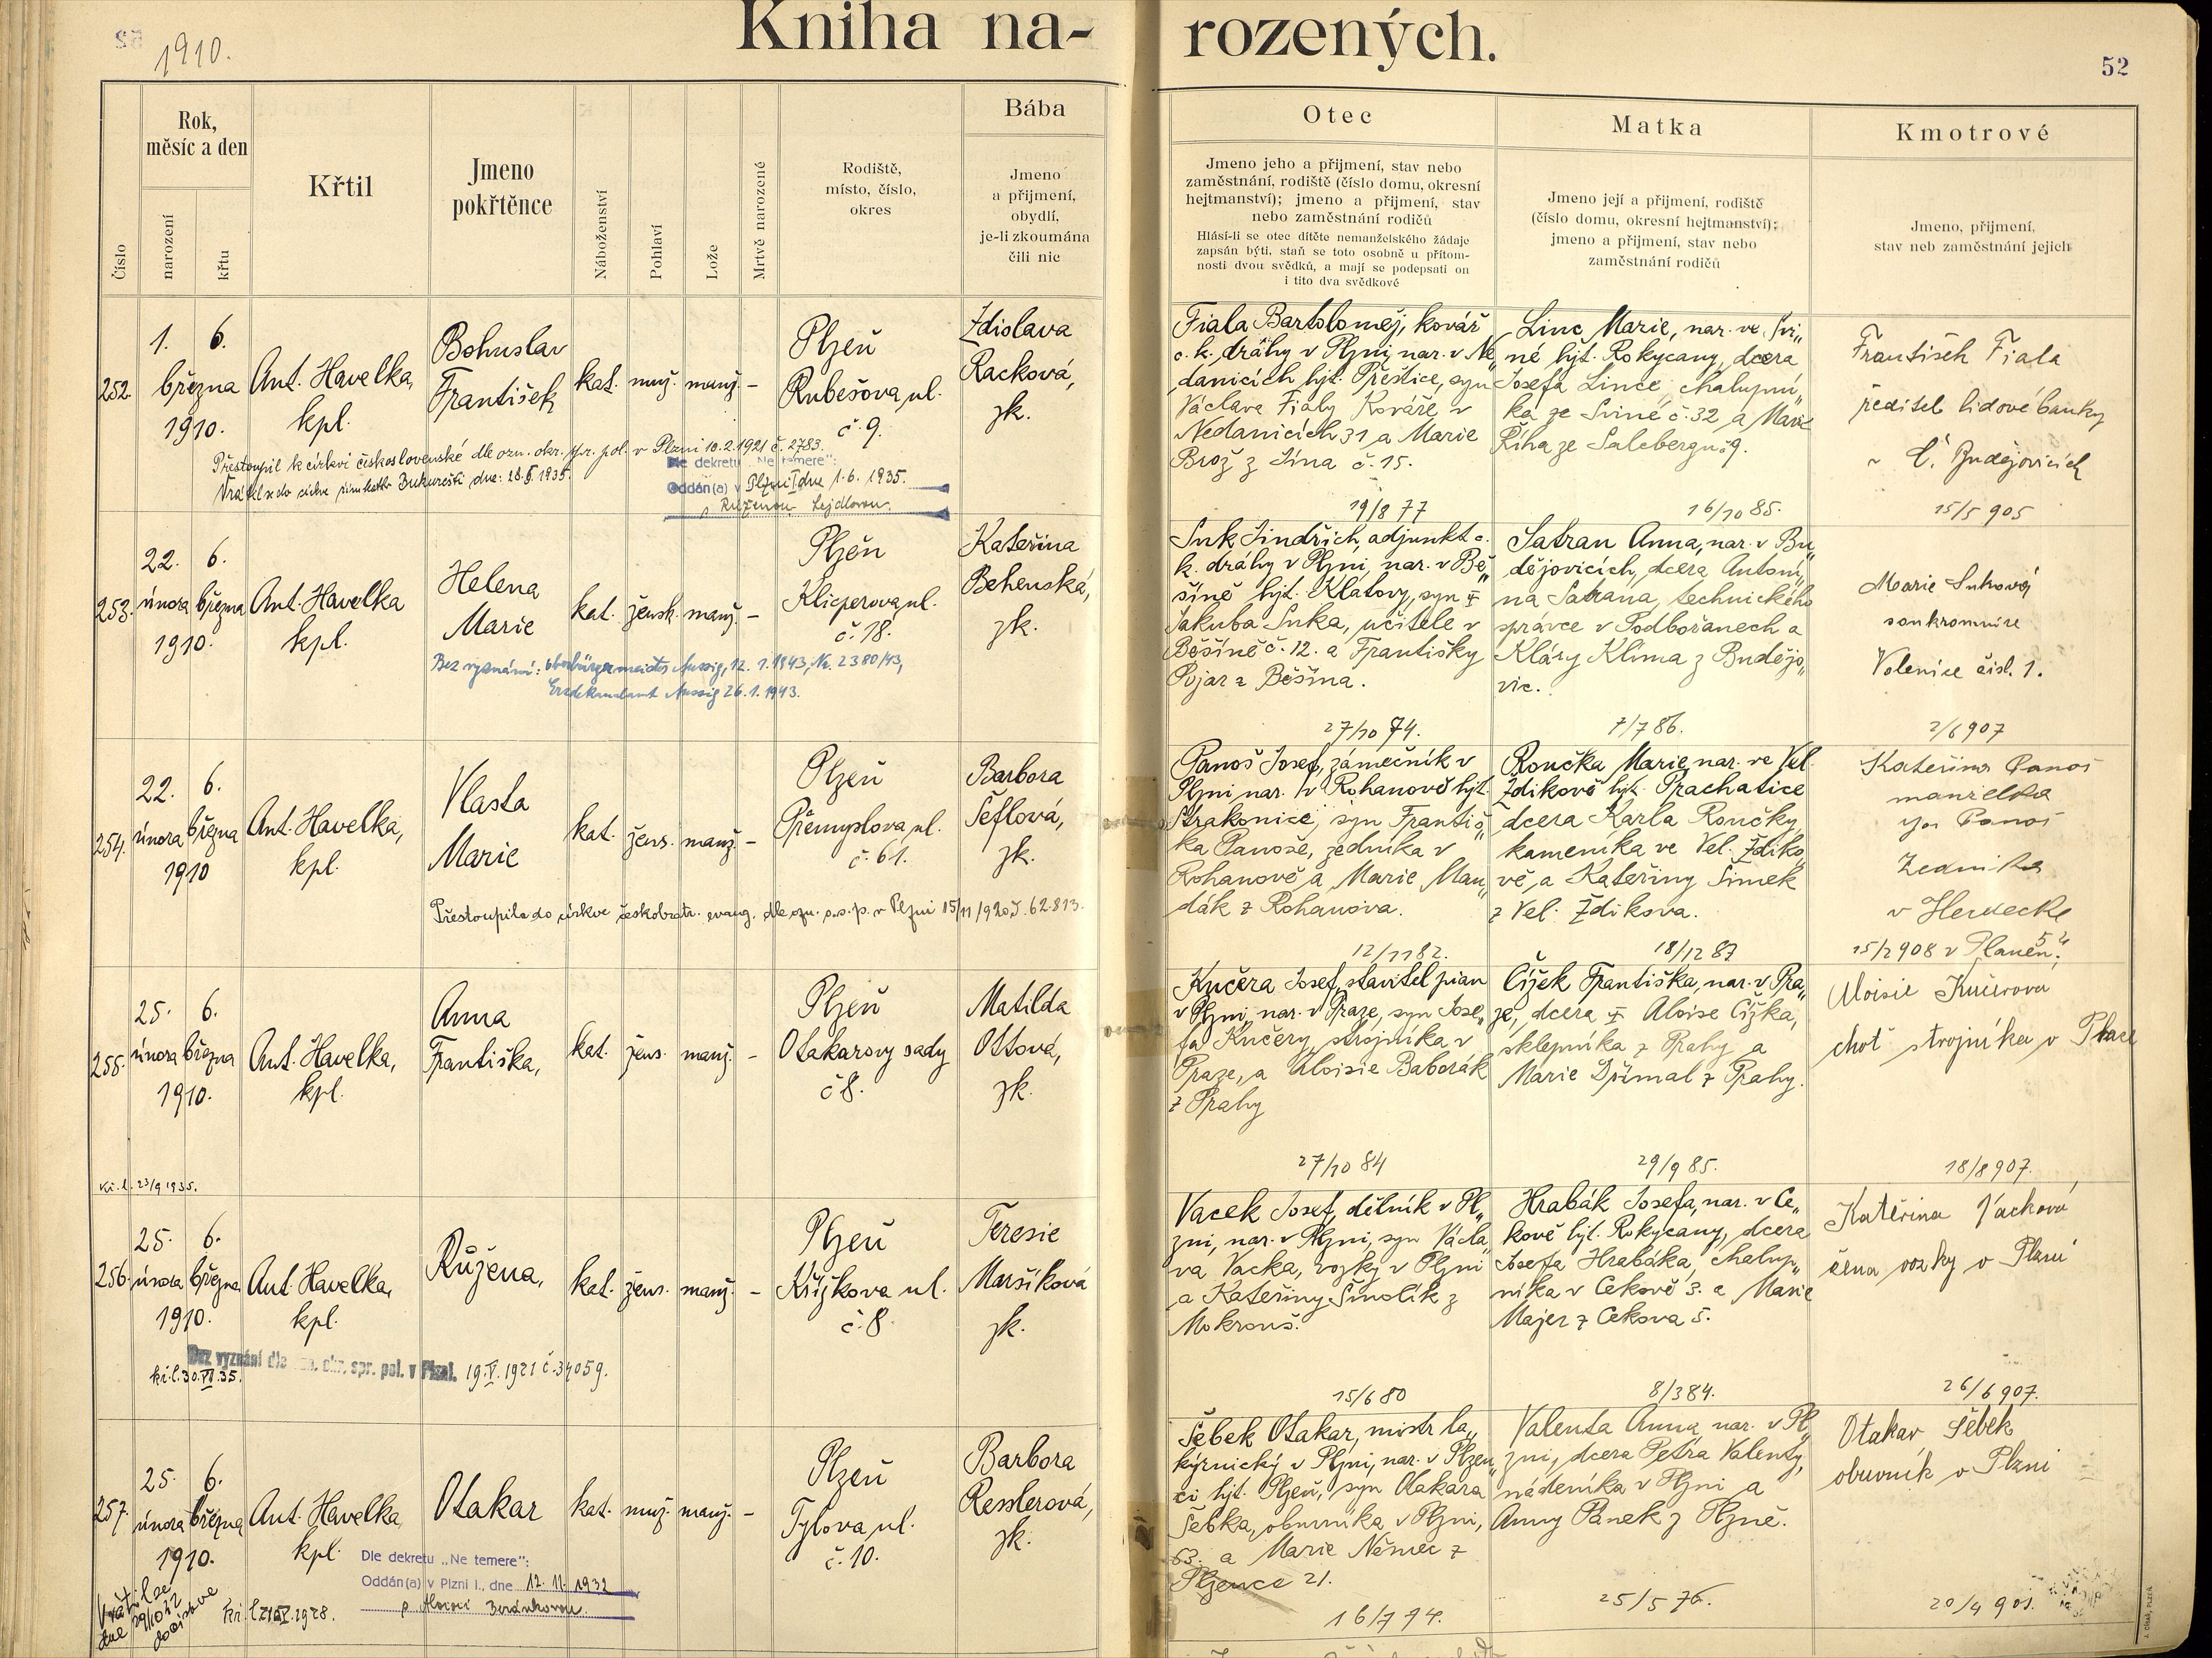 Kniha na-
rozených.
1910.
52
Číslo
Rok,
měsíc a den
narození
křtu
Křtil
Jmeno
pokřtěnce
Náboženství
Pohlaví
Lože
Mrtvě narozené
Rodiště,
místo, číslo,
okres
Bába
Jmeno
a přijmení,
obydlí,
je-li zkoumána
čili nic
Otec
Jmeno jeho a přijmení, stav nebo
zaměstnání, rodiště (číslo domu, okresní
hejtmanství); jmeno a přijmení, stav
nebo zaměstnání rodičů
Hlásí-li se otec dítěte nemanželského žádaje
zapsán býti, staň se toto osobně u přítom-
nosti dvou svědků, a mají se podepsati on
i tito dva svědkové
Matka
Jmeno její a přijmení, rodiště
(číslo domu, okresní hejtmanství);
jmeno a přijmení, stav nebo
zaměstnání rodičů
Kmotrové
Jmeno, přijmení,
stav neb zaměstnání jejich
252.
1. 6.
března
1910.
Ant. Havelka,
kpl.
Bohuslav
František
kat. muž. manž. –
Plzeň
Rubešova ul.
č. 9.
Zdislava
Racková,
zk.
Přestoupil k církvi československé dle ozn. okr. spr. pol. v Plzni 10.2.1921 č. 2783.
Dle dekretu „Ne temere":
Oddán(a) v Plzni I dne 1. 6. 1935.
s Růženou Lejdlovou.
Fiala Bartoloměj, kovář
c. k. dráhy v Plzni, nar. v Ne„
danicích hjt. Přeštice, syn
Václava Fialy kováře v
Nedanicích 31 a Marie
Brož z Jína č. 15.
19/8 77
Linc Marie, nar. ve Svi„
né hjt. Rokycany, dcera
Josefa Lince, chalupní„
ka ze Sviné č. 32 a Marie
Říha ze Salcbergu 9.
16/10 85.
František Fiala
ředitel lidové banky
v Č. Budějovicích
15/5 905
253.
22. 6.
února března
1910.
Ant. Havelka
kpl.
Helena
Marie
kat. žensk. manž. –
Plzeň
Klicperova ul.
č. 18.
Kateřina
Behenská,
zk.
Bez vyznání: Oberbürgermeister Aussig, 12. 1. 1943, Nr. 2380/43,
Erzdekanalamt Aussig 26. 1. 1943.
Suk Jindřich, adjunkt c.
k. dráhy v Plzni, nar. v Bě„
šíně hjt. Klatovy, syn
Jakuba Suka, učitele v
Běšíně č. 12. a Františky
Pojar z Běšína.
27/10 74.
Šatran Anna, nar. v Bu„
dějovicích, dcera Antoní„
na Šatrana, technického
správce v Podbořanech a
Kláry Klíma z Budějo„
vic.
7/7 86.
Marie Suková
soukromnice
Volenice čísl. 1.
2/6 907
254.
22. 6.
února března
1910
Ant. Havelka,
kpl.
Vlasta
Marie
kat. žens. manž. –
Plzeň
Přemyslova ul.
č. 61.
Barbora
Šeflová,
zk.
Přestoupila do církve českobratr. evang. dle ozn. o.s.p. v Plzni 15/11 1920 č. 62.813.
Panoš Josef, zámečník v
Plzni, nar. v Rohanově hjt.
Strakonice, syn Františ„
ka Panoše, zedníka v
Rohanově a Marie Man„
dák z Rohanova.
12/11 82.
Roučka Marie, nar. ve Vel.
Zdíkově hjt. Prachatice
dcera Karla Roučky,
kameníka ve Vel. Zdíko„
vě, a Kateřiny Šimek
z Vel. Zdíkova.
18/12 87
Kateřina Panoš
manželka
Panoš
Zedníka
v Herdecke
15/2 908 v Planěn
255.
25. 6.
února března
1910.
Ant. Havelka,
kpl.
Anna
Františka,
kat. žens. manž. –
Plzeň
Otakarovy sady
č. 8.
Matilda
Ottová,
zk.
23/9 1935.
Kučera Josef, stavitel pian
v Plzni, nar. v Praze, syn Jose„
fa Kučery, strojníka v
Praze, a Aloisie Baborák
z Prahy
27/10 84
Čížek Františka, nar. v Pra„
ze, dcera Aloise Čížka,
sklepníka z Prahy a
Marie Dřímal z Prahy.
29/9 85.
Aloisie Kučerova
choť strojníka v Praze
18/8 907.
256.
25. 6.
února března
1910.
Ant. Havelka,
kpl.
Růžena,
kat. žens. manž. –
Plzeň
Křižkova ul.
č. 8.
Teresie
Maršíková
zk.
Bez vyznání dle ozn. okr. spr. pol. v Plzni. 19.V.1921 č. 34059.
kř.l. 30.VI.35.
Vacek Josef, dělník v Pl„
zni, nar. v Plzni, syn Václa„
va Vacka, vozky v Plzni
a Kateřiny Smolík z
Mokrouš.
15/6 80
Hrabák Josefa, nar. v Ce„
kově hjt. Rokycany, dcera
Josefa Hrabáka, chalup„
níka v Cekově 3. a Marie
Majer z Cekova 5.
8/3 84.
Kateřina Vacková
žena vozky v Plzni
26/6 907.
257.
25. 6.
února března
1910.
Ant. Havelka
kpl.
Otakar
kat. muž. manž. –
Plzeň
Tylova ul.
č. 10.
Barbora
Resslerová,
zk.
Dle dekretu „Ne temere":
Oddán(a) v Plzni I., dne 12. 11. 1932
s Aloisií Beránkovou.
Vrátil se
dne 29/10 32
do církve
Šebek Otakar, mistr la„
kýrnický v Plzni, nar. v Plzen„
ci hjt. Plzeň, syn Otakara
Šebka, obuvníka v Plzni,
63. a Marie Němec z
Plzence 21.
16/7 74.
Valenta Anna, nar. v Pl„
zni, dcera Petra Valenty,
nádeníka v Plzni a
Anny Pánek z Plzně.
25/5 76.
Otakar Šebek
obuvník v Plzni
20/4 901.